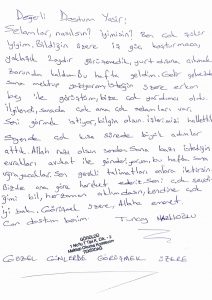 Değerli Dostum Yasir;
Selamlar, nasılsın? İyimisin? Ben çok şükür
iyiyim. Bildiğin üzere iş güç koşturmaca,
yaklaşık 2 aydır görüşemedik, yurt dışına çıkmak
zorunda kaldım. Bu hafta geldim. Gelir gelmez
sana mektup yazıyorum. İsteğin üzere erken
bey ile görüştüm, bize çok yardımcı oldu
ilgilendi, sanada çok ama çok selamları var.
Seni görmek istiyor, bilgin olsun. İşlerimizi halletti
Sayende çok kısa sürede büyük adımlar
attık. Allah razı olsun senden. Sana bazı istediğin
evrakları avukat ile gönderiyorum, bu hafta sana
uğrayacaklar. Sen gerekli talimatları onlara iletirsin.
Bizde ona göre hareket ederiz. Seni çok sevdi-
ğimi bil, herzaman aklımdasın, kendine çok
iyi bak. Görüşmek üzere, Allaha emanet.
Can dostum benim. Tuncay
GÖRÜLDÜ
GÜZEL GÜNLERDE GÖRÜŞMEK ÜZERE